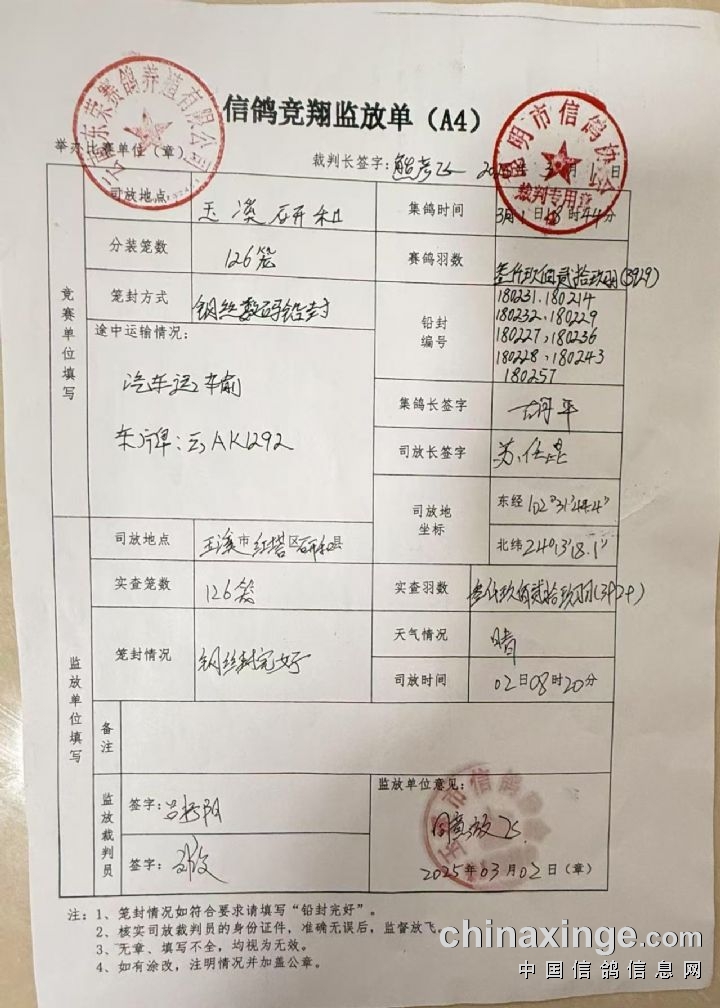 信鸽竞翔监放单（A4）
举办比赛单位（章）
裁判长签字： 2025年3月1日
昆明市信鸽协会
裁判专用章
竞赛单位填写
司放地点 玉溪研和 集鸽时间 3月1日18时44分
分装笼数 126笼 赛鸽羽数 叁仟玖佰贰拾玖羽(3929)
笼封方式 钢丝数码铅封 铅封编号 180231、180214
180232、180229
180227、180236
180228、180243
180257
途中运输情况：
汽车运输
车牌：云AK1292
集鸽长签字
司放长签字
司放地坐标 东经 102°31′44.4″
北纬 24°13′18.1″
监放单位填写
司放地点 玉溪市红塔区研和县
实查笼数 126笼 实查羽数 叁仟玖佰贰拾玖羽(3929)
笼封情况 钢丝封完好 天气情况 晴
司放时间 02日08时20分
备注
监放裁判员 签字：
签字：
监放单位意见：
同意放飞
2025年03月02日（章）
注：1、笼封情况如符合要求请填写“铅封完好”。
2、核实司放裁判员的身份证件，准确无误后，监督放飞。
3、无章、填写不全，均视为无效。
4、如有涂改，注明情况并加盖公章。
chinaxinge.com
中国信鸽信息网